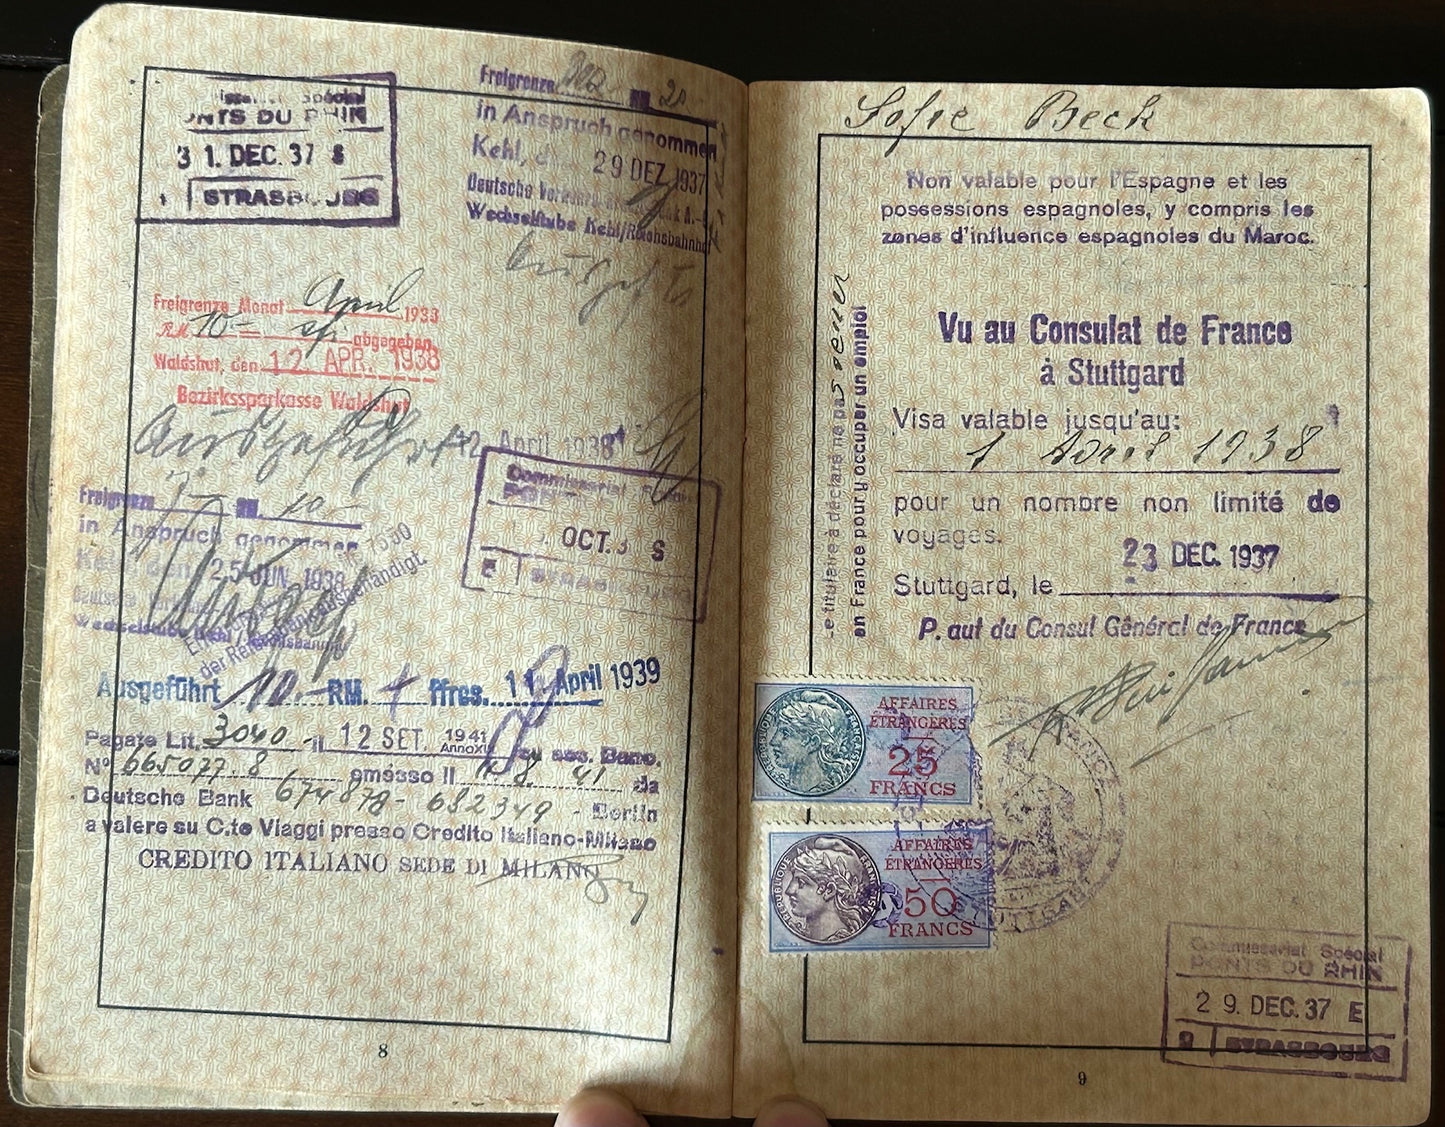 Spécial
PONTS DU RHIN
31. DEC. 37 S
STRASBOURG
Freigrenze Dez RM 20
in Anspruch genommen
Kehl, d 29 DEZ 1937
Deutsche
Wechselstube Kehl/Reichsbahnhof
Freigrenze Monat April 1938
RM 10.- abgegeben
Waldshut, den 12. APR. 1938
Bezirkssparkasse Waldshut
Ausgeführt
April 1938
Commissariat
OCT. 3 S
E
Freigrenze RM 10
in Anspruch genommen
Kehl den 25 JUN. 1938
Wechselstube Kehl
Ausgeführt 10.- RM. ffres. 11 April 1939
Pagate Lit. 3040 - il 12 SET. 1941
su ass. Banc.
N° 665077.8 emesso il 11.8. 41 da
Deutsche Bank 674878 - 682349 - Berlin
a valere su C.to Viaggi presso Credito Italiano-Milano
CREDITO ITALIANO SEDE DI MILANO
8
Sofie Beck
Non valable pour l'Espagne et les
possessions espagnoles, y compris les
zones d'influence espagnoles du Maroc.
Le titulaire a déclaré ne pas venir
en France pour y occuper un emploi
Vu au Consulat de France
à Stuttgard
Visa valable jusqu'au:
1 Avril 1938
pour un nombre non limité de
voyages.
23 DEC. 1937
Stuttgard, le
P. aut du Consul Général de France
AFFAIRES
ÉTRANGÈRES
25
FRANCS
RÉPUBLIQUE FRANÇAISE
AFFAIRES
ÉTRANGÈRES
50
FRANCS
RÉPUBLIQUE FRANÇAISE
Commissariat Spécial
PONTS DU RHIN
29. DEC. 37 E
STRASBOURG
9